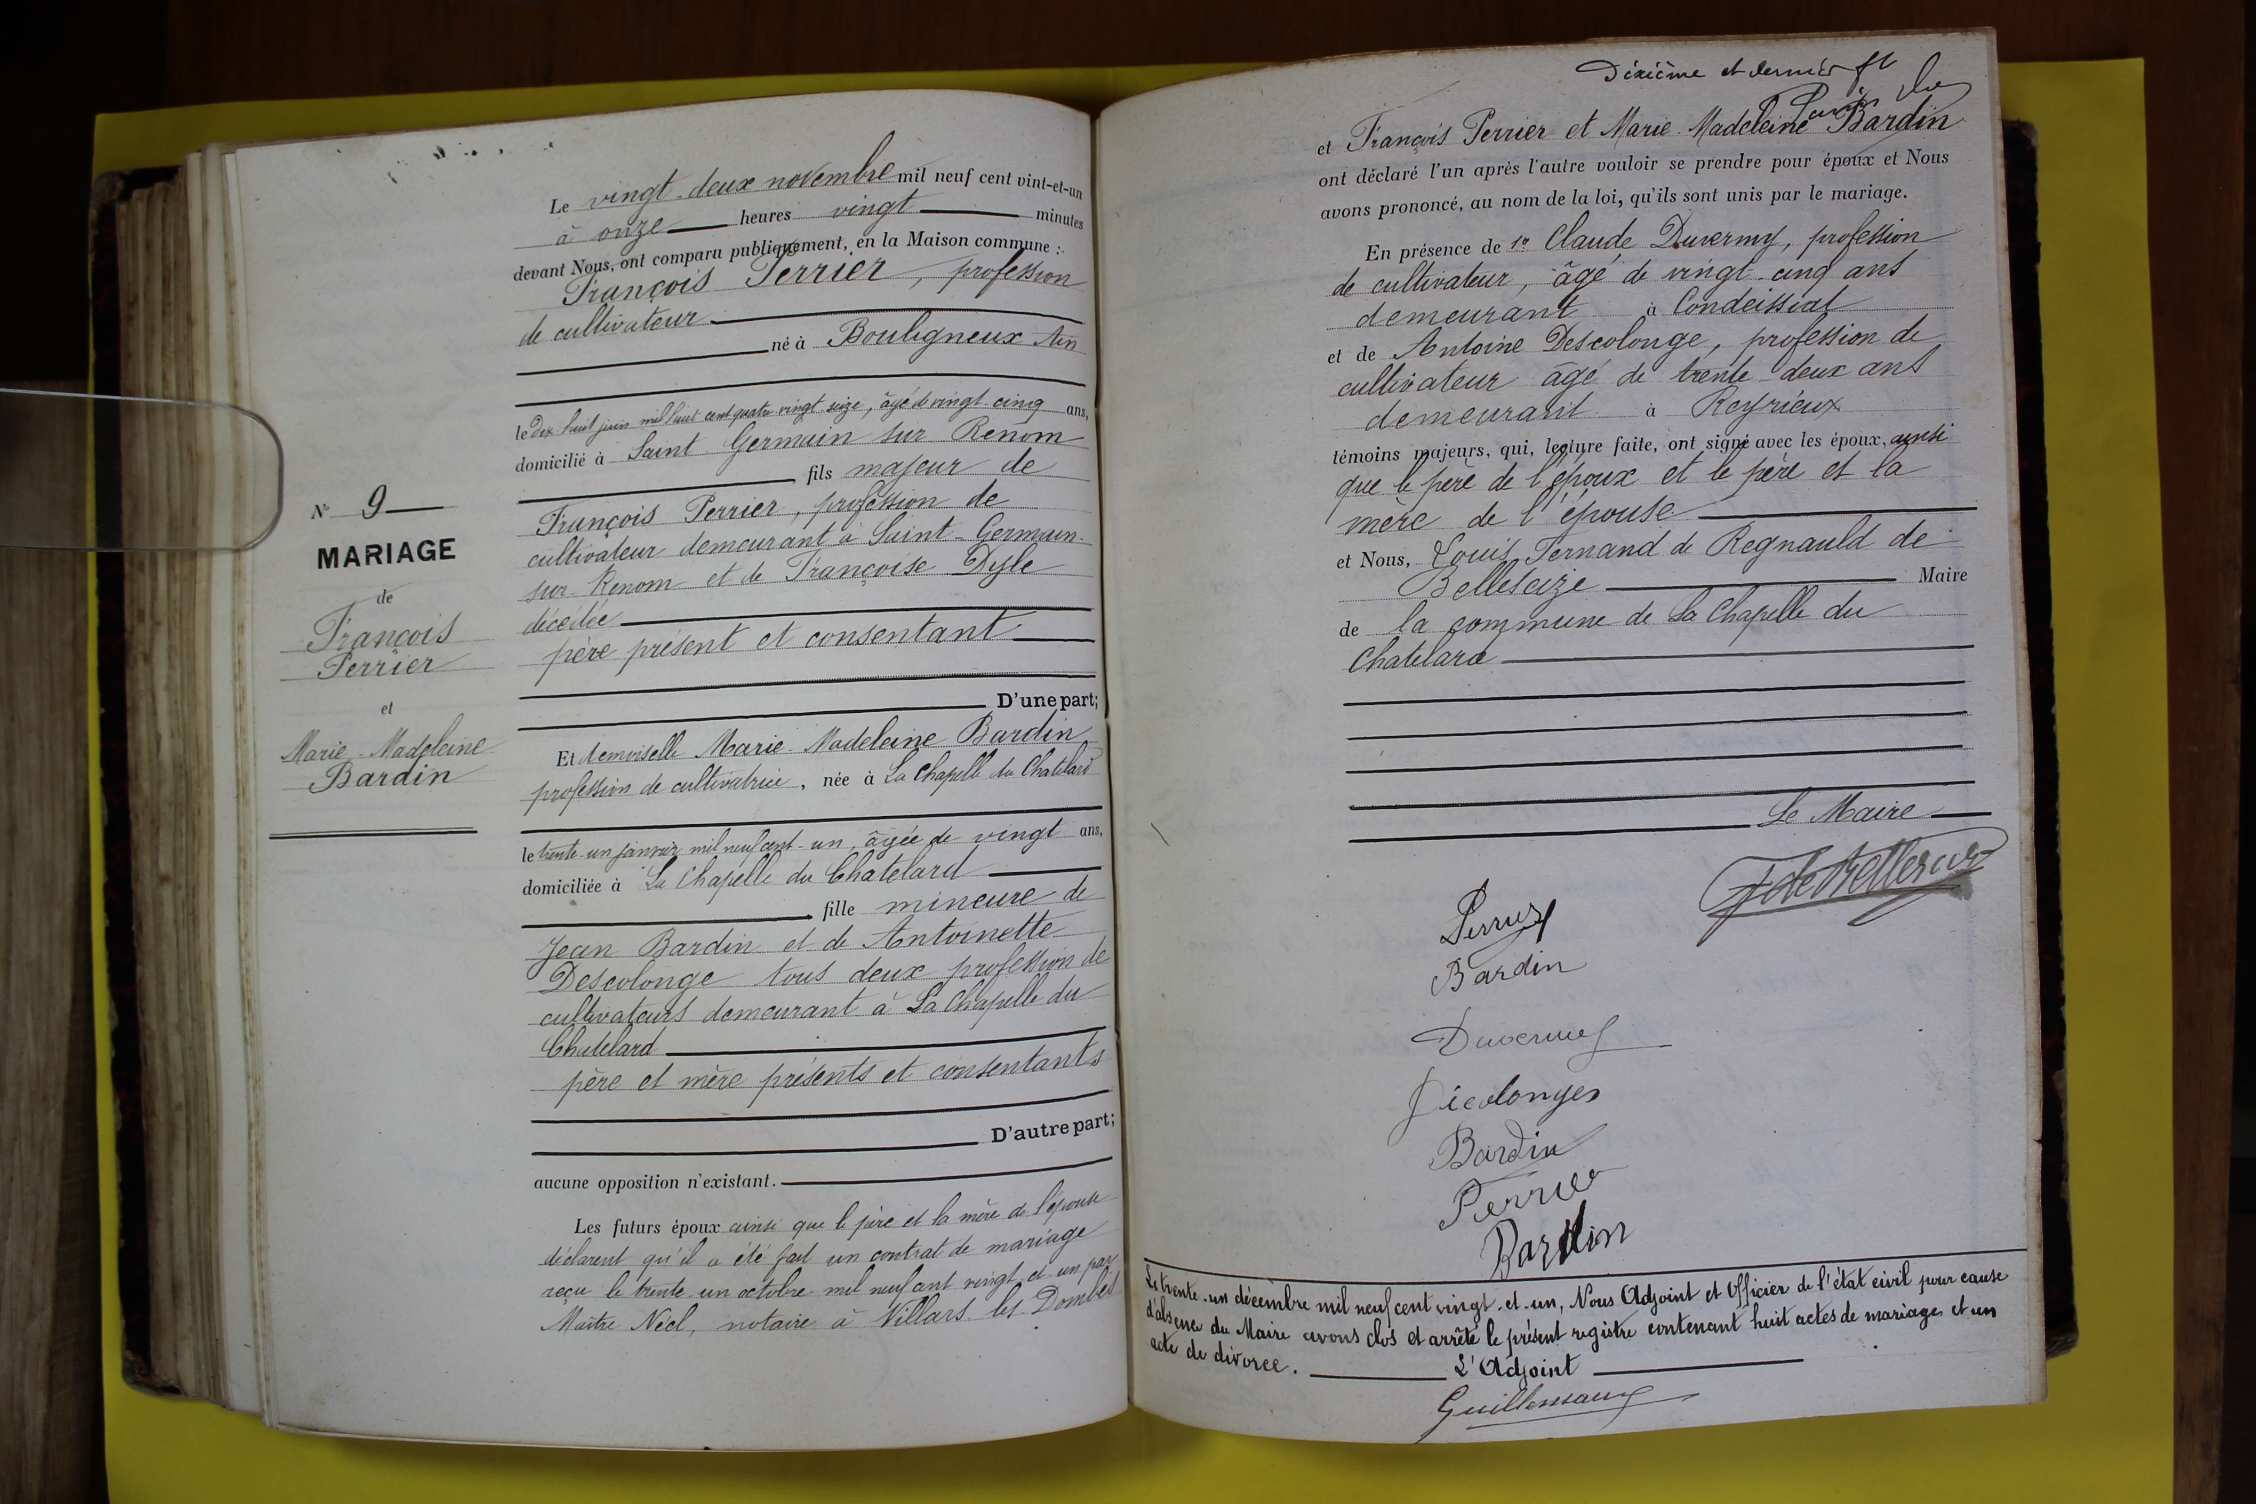 N° 9
MARIAGE
de
François
Perrier
et
Marie-Madeleine
Bardin
Le vingt-deux novembre mil neuf cent vint-et-un
à onze heures vingt minutes
devant Nous, ont comparu publiquement, en la Maison commune :
François Perrier, profession
de cultivateur
né à Bouligneux Ain
le dix-huit juin mil huit cent quatre vingt seize, âgé de vingt-cinq ans,
domicilié à Saint Germain sur Renom
fils majeur de
François Perrier, profession de
cultivateur demeurant à Saint-Germain-
sur-Renom et de Françoise Dyle
décédée
père présent et consentant
D'une part;
Et demoiselle Marie-Madeleine Bardin
profession de cultivatrice, née à La Chapelle du Chatelard
le trente-un janvier mil neuf cent-un, âgée de vingt ans,
domiciliée à La Chapelle du Chatelard
fille mineure de
Jean Bardin et de Antoinette
Descolonge tous deux profession de
cultivateurs demeurant à La Chapelle du
Chatelard
père et mère présents et consentants
D'autre part;
aucune opposition n'existant.
Les futurs époux ainsi que le père et la mère de l'épouse
déclarent qu'il a été fait un contrat de mariage
reçu le trente-un octobre mil neuf cent vingt et un par
Maître Nécl, notaire à Villars-les Dombes
Dixième et dernier
et François Perrier et Marie-Madeleine Bardin
ont déclaré l'un après l'autre vouloir se prendre pour époux et Nous
avons prononcé, au nom de la loi, qu'ils sont unis par le mariage.
En présence de 1° Claude Duvermy, profession
de cultivateur, âgé de vingt-cinq ans
demeurant à Condeissiat
et de Antoine Descolonge, profession de
cultivateur âgé de trente-deux ans
demeurant à Reyrieux
témoins majeurs, qui, lecture faite, ont signé avec les époux, ainsi
que le père de l'époux et le père et la
mère de l'épouse
et Nous, Louis Fernand de Regnauld de
Bellescize Maire
de la commune de La Chapelle du
Chatelard
Le Maire
Bardin
Bardin
Perrier
Bardin
Le trente-un décembre mil neuf cent vingt-et-un, Nous Adjoint et Officier de l'état civil pour cause
d'absence du Maire avons clos et arrêté le présent registre contenant huit actes de mariages et un
acte de divorce. L'Adjoint